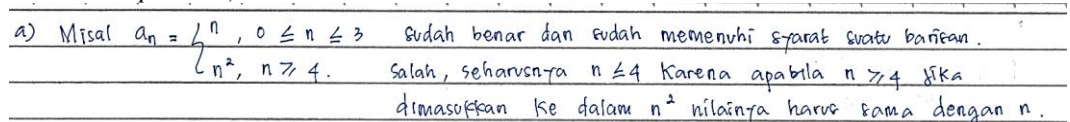 a) Misal aₙ = { n , 0 ≤ n ≤ 3 sudah benar dan sudah memenuhi syarat suatu barisan.
n², n ≥ 4. Salah, seharusnya n ≤ 4 karena apabila n ≥ 4 jika
dimasukkan ke dalam n² nilainya harus sama dengan n.